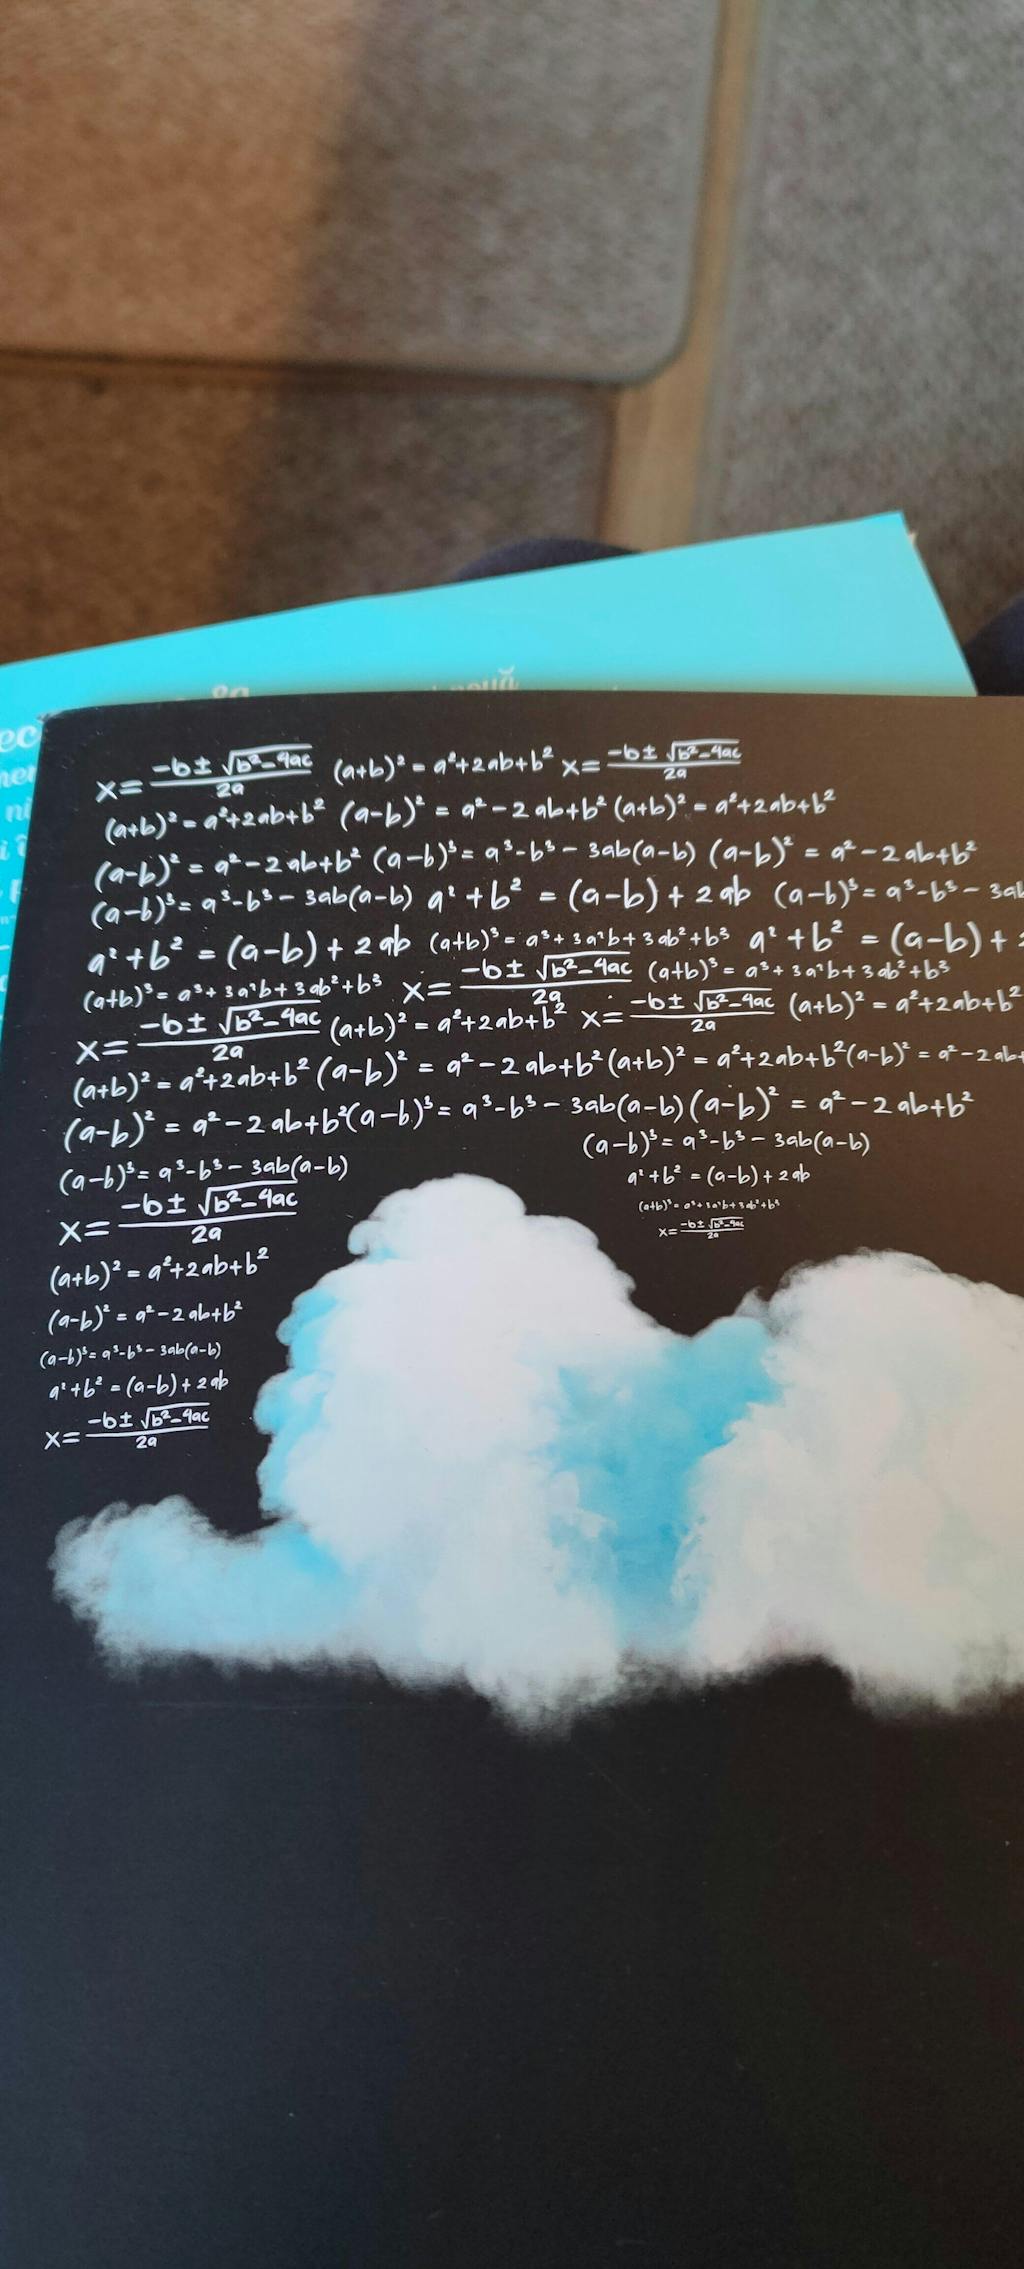 8a
nouă
ec
ni
x= -b± √b²-4ac / 2a (a+b)² = a²+2ab+b² x= -b± √b²-4ac / 2a
(a+b)² = a²+2ab+b² (a-b)² = a²-2ab+b² (a+b)² = a²+2ab+b²
(a-b)² = a²-2ab+b² (a-b)³= a³-b³-3ab(a-b) (a-b)² = a²-2ab+b²
(a-b)³= a³-b³-3ab(a-b) a²+b² = (a-b)+2ab (a-b)³= a³-b³-3ab
a²+b² = (a-b)+2ab (a+b)³= a³+3a²b+3ab²+b³ a²+b² = (a-b)+2
(a+b)³= a³+3a²b+3ab²+b³ x= -b± √b²-4ac / 2a (a+b)³= a³+3a²b+3ab²+b³
x= -b± √b²-4ac / 2a (a+b)² = a²+2ab+b² x= -b± √b²-4ac / 2a (a+b)² = a²+2ab+b²
(a+b)² = a²+2ab+b² (a-b)² = a²-2ab+b² (a+b)² = a²+2ab+b² (a-b)² = a²-2ab+
(a-b)² = a²-2ab+b² (a-b)³= a³-b³-3ab(a-b) (a-b)² = a²-2ab+b²
(a-b)³= a³-b³-3ab(a-b)
(a-b)³= a³-b³-3ab(a-b)
a²+b² = (a-b)+2ab
(a+b)³= a³+3a²b+3ab²+b³
x= -b± √b²-4ac / 2a
x= -b± √b²-4ac / 2a
(a+b)² = a²+2ab+b²
(a-b)² = a²-2ab+b²
(a-b)³= a³-b³-3ab(a-b)
a²+b² = (a-b)+2ab
x= -b± √b²-4ac / 2a